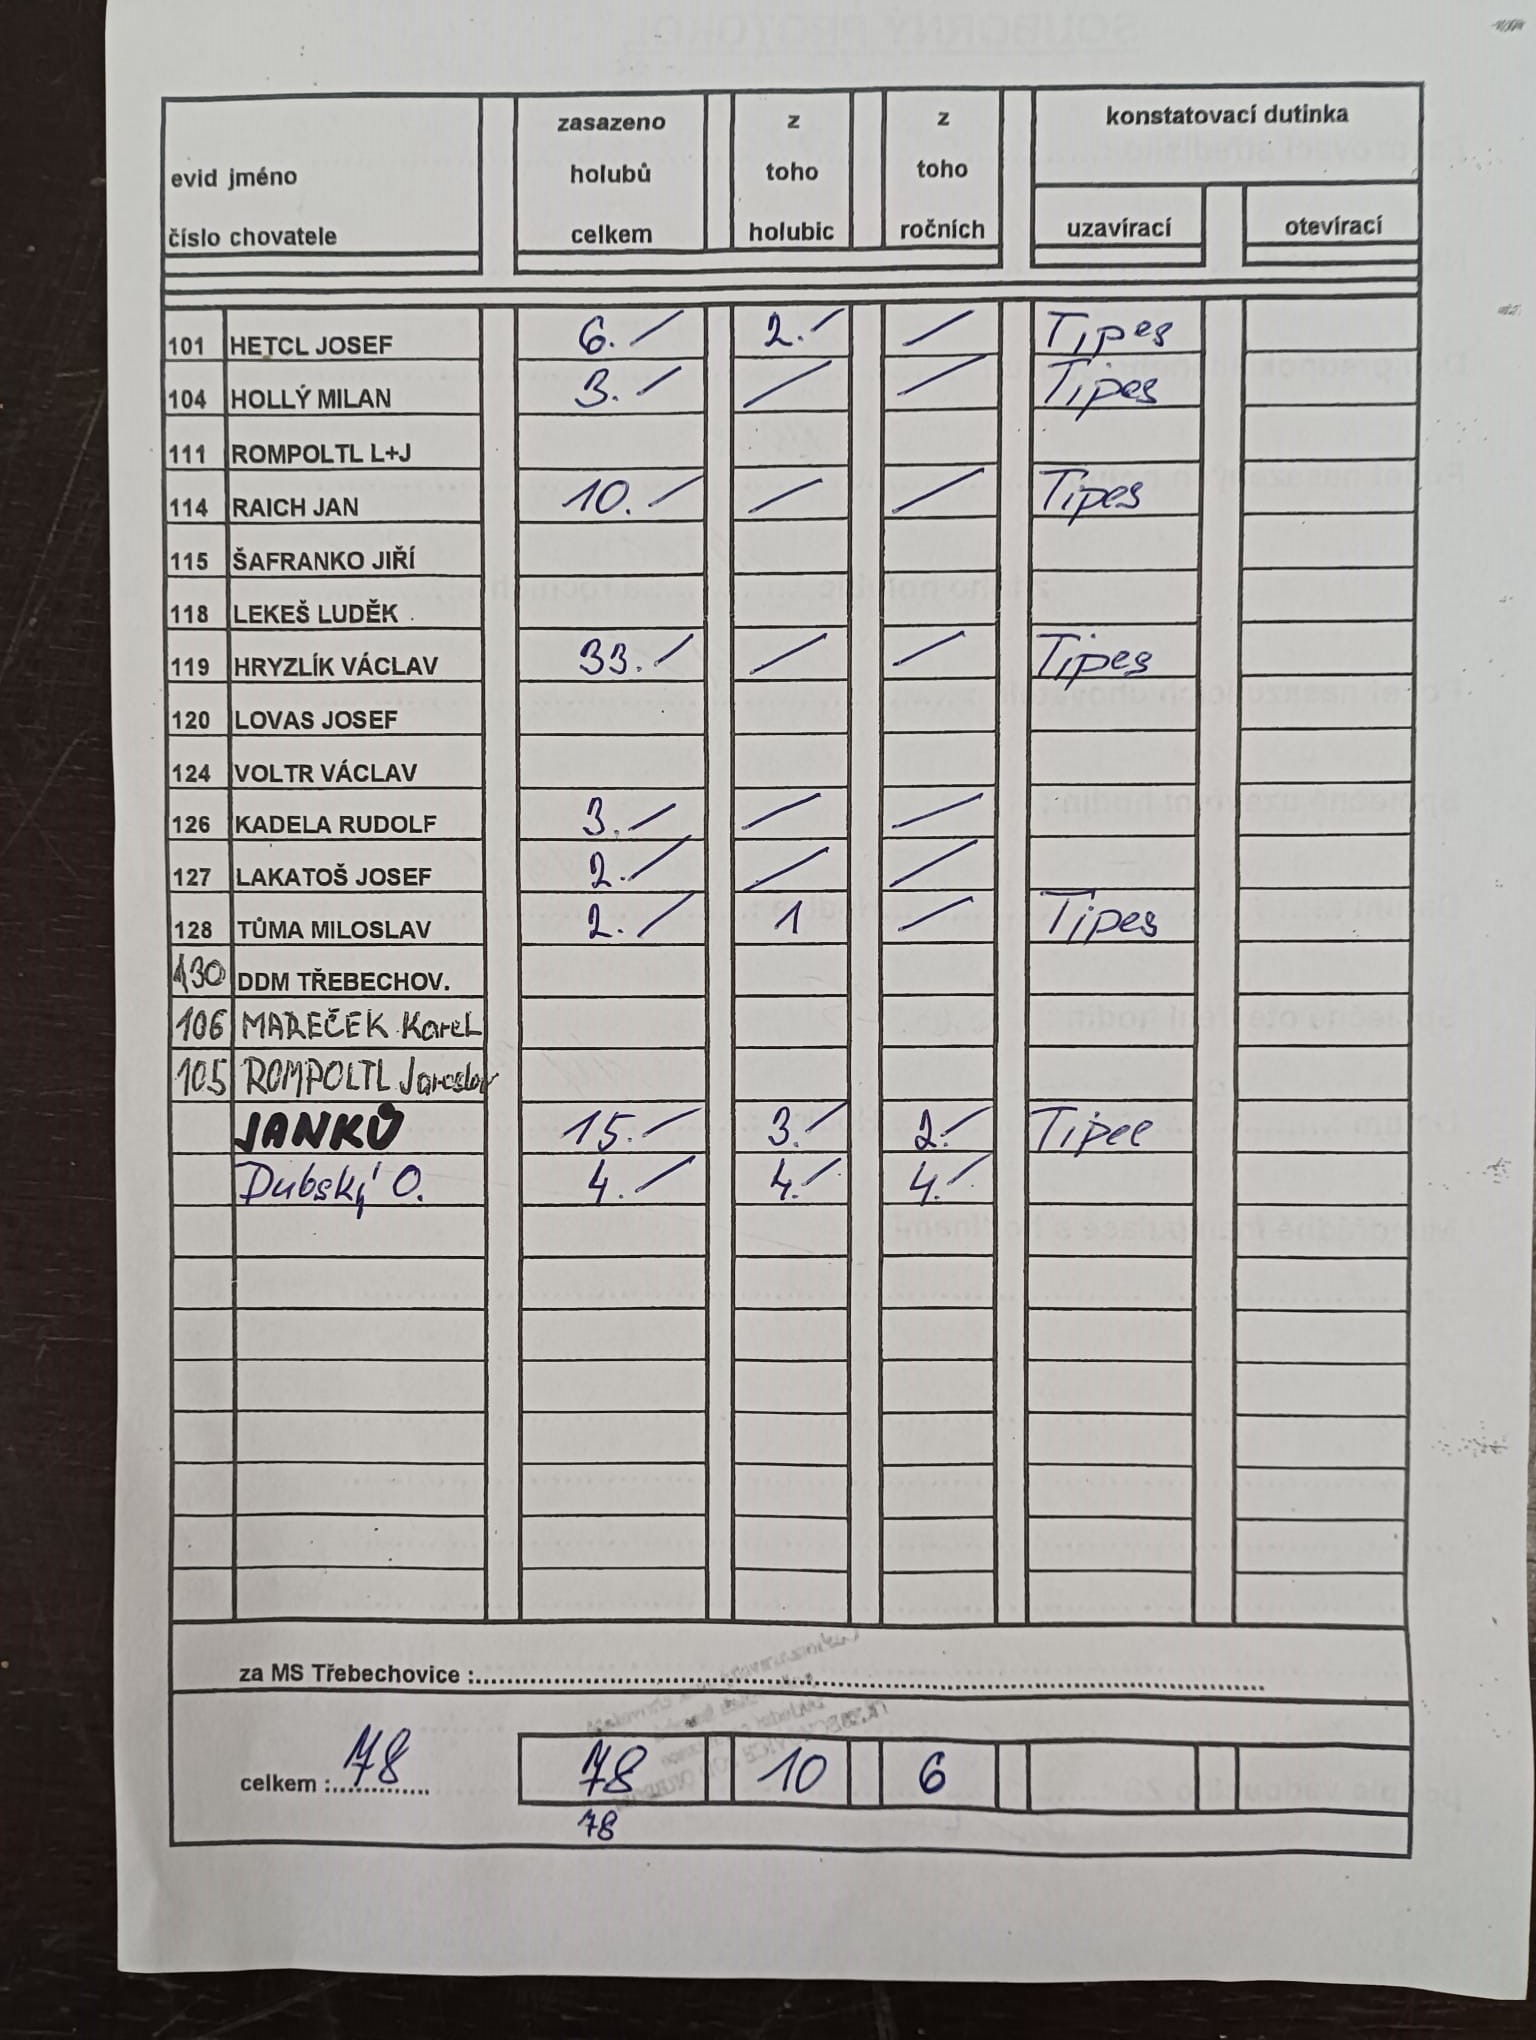 evid jméno
číslo chovatele
zasazeno
holubů
celkem
z
toho
holubic
z
toho
ročních
konstatovací dutinka
uzavírací
otevírací
101 HETCL JOSEF 6.- 2.- / Tipes
104 HOLLÝ MILAN 3.- / / Tipes
111 ROMPOLTL L+J
114 RAICH JAN 10.- / / Tipes
115 ŠAFRANKO JIŘÍ
118 LEKEŠ LUDĚK
119 HRYZLÍK VÁCLAV 33.- / / Tipes
120 LOVAS JOSEF
124 VOLTR VÁCLAV
126 KADELA RUDOLF 3.- / /
127 LAKATOŠ JOSEF 2.- / /
128 TŮMA MILOSLAV 2.- 1 / Tipes
130 DDM TŘEBECHOV.
106 MAREČEK Karel
105 ROMPOLTL Jaroslav
JANKŮ 15.- 3.- 2.- Tipee
Dubský O. 4.- 4.- 4.-
za MS Třebechovice :
celkem : 78 78 10 6
78